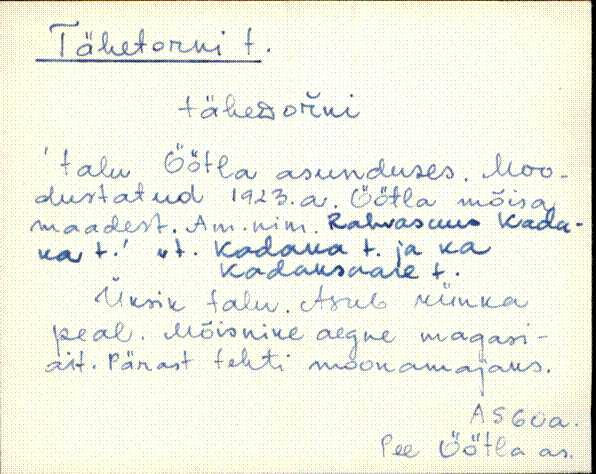 Tähetorni t.
täheDořni
'talu Öötla asunduses. Moo-
dustatud 1923. a. Öötla mõisa
maadest. Am. nim. Rahvasuus Kada-
ka t.' vt. Kadaka t. ja ka
Kadaksaare t.
Üksik talu. Asub künka
peal. Mõisnike aegne magasi-
ait. Pärast tehti moonamajaks.
AS 60 a.
Pee Öötla as.